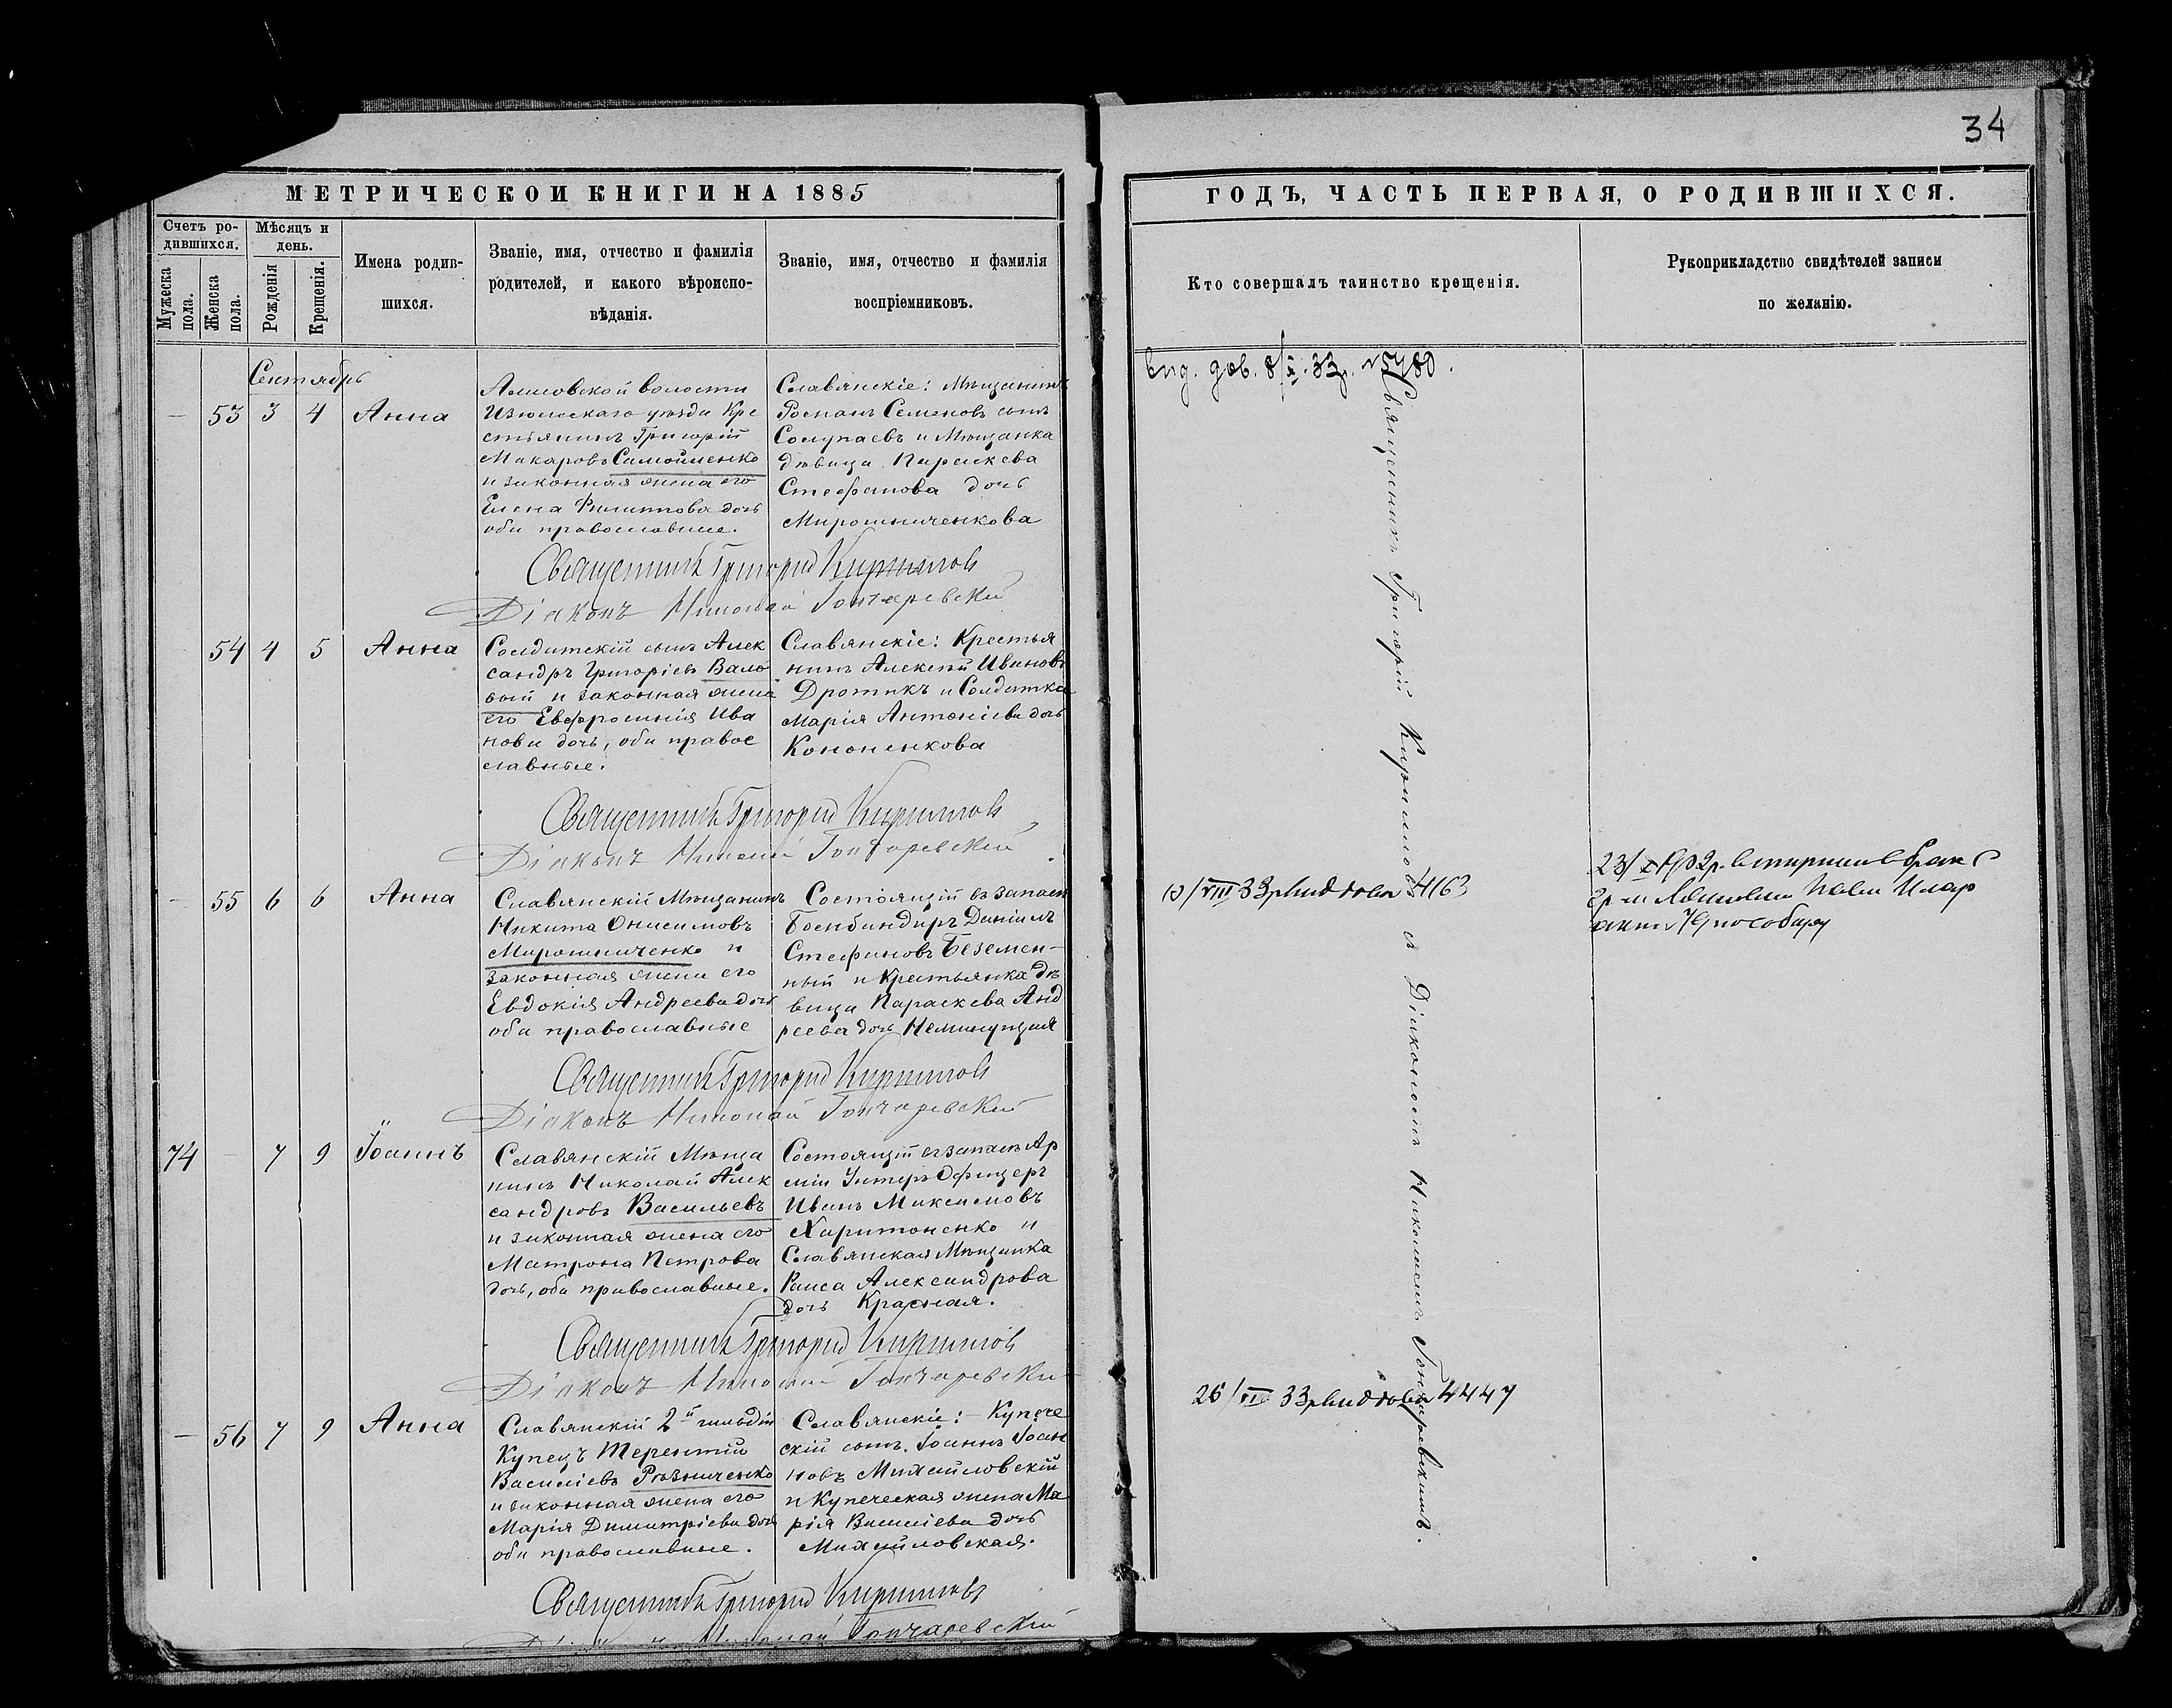 34
МЕТРИЧЕСКОЙ КНИГИ НА 1885
ГОДЪ, ЧАСТЬ ПЕРВАЯ, О РОДИВШИХСЯ.
Счетъ ро-
дившихся.
Мужеска
пола.
Женска
пола.
Мѣсяцъ и
день.
Рожденія
Крещенія.
Имена родив-
шихся.
Званіе, имя, отчество и фамилія
родителей, и какого вѣроиспо-
вѣданія.
Званіе, имя, отчество и фамилія
воспріемниковъ.
Кто совершалъ таинство крещенія.
Рукоприкладство свидѣтелей записи
по желанію.
Сентябрь
— 53 3 4 Анна
волости
Изюмскаго уѣзда Кре
стьянинъ Григорій
Макаровъ Самойленко
и законная жена его
Елена Филиппова дочь
оба православные.
Славянскіе: Мѣщанинъ
Романъ Семеновъ сынъ
и Мѣщанка
дѣвица Параскева
Стефанова дочь
Мирошниченкова
Священникъ Григорій Кирилловъ
Діаконъ Николай Гончаревскій
54 4 5 Анна
Солдатскій сынъ Алек
сандръ Григоріевъ Вало
вый и законная жена
его Евфросинія Ива
нова дочь, оба правос
славные.
Славянскіе: Крестья
нинъ Алексѣй Ивановъ
Дротикъ и Солдатка
Марія Антоніева дочь
Кононенкова
Священникъ Григорій Кирилловъ
Діаконъ Николай Гончаревскій
— 55 6 6 Анна
Славянскій Мѣщанинъ
Никита Онисимовъ
Мирошниченко и
законная жена его
Евдокія Андреева дочь
оба православные
Состоящій въ запасѣ
Бомбандиръ Даніилъ
Стефановъ Беземен-
ный и Крестьянка дѣ
вица Параскева Анд
реева дочь Неминущая
Священникъ Григорій Кирилловъ
Діаконъ Николай Гончаревскій
74 — 7 9 Іоаннъ
Славянскій Мѣща
нинъ Николай Алек
сандровъ Васильевъ
и законная жена его
Матрона Петрова
дочь, оба православные.
Состоящій въ запасѣ Ар
міи Унтеръ Офицеръ
Иванъ Максимовъ
Харитоненко и
Славянская Мѣщанка
Раиса Александрова
дочь Красная.
Священникъ Григорій Кирилловъ
Діаконъ Николай Гончаревскій
— 56 7 9 Анна
Славянскій 2й гильдіи
Купецъ Терентій
Василіевъ Рѣзниченко
и законная жена его
Марія Димитріева дочь
оба православные.
Славянскіе: Купече
скій сынъ Іоаннъ Іоан
новъ Михайловскій
и Купеческая жена Ма
рія Василіева дочь
Михайловская.
Священникъ Григорій Кирилловъ
Николай Гончаревскій
Священникъ Григорій Кирилловъ съ Діакономъ Николаемъ Гончаревскимъ.
4163
26/VIII 33р 4447